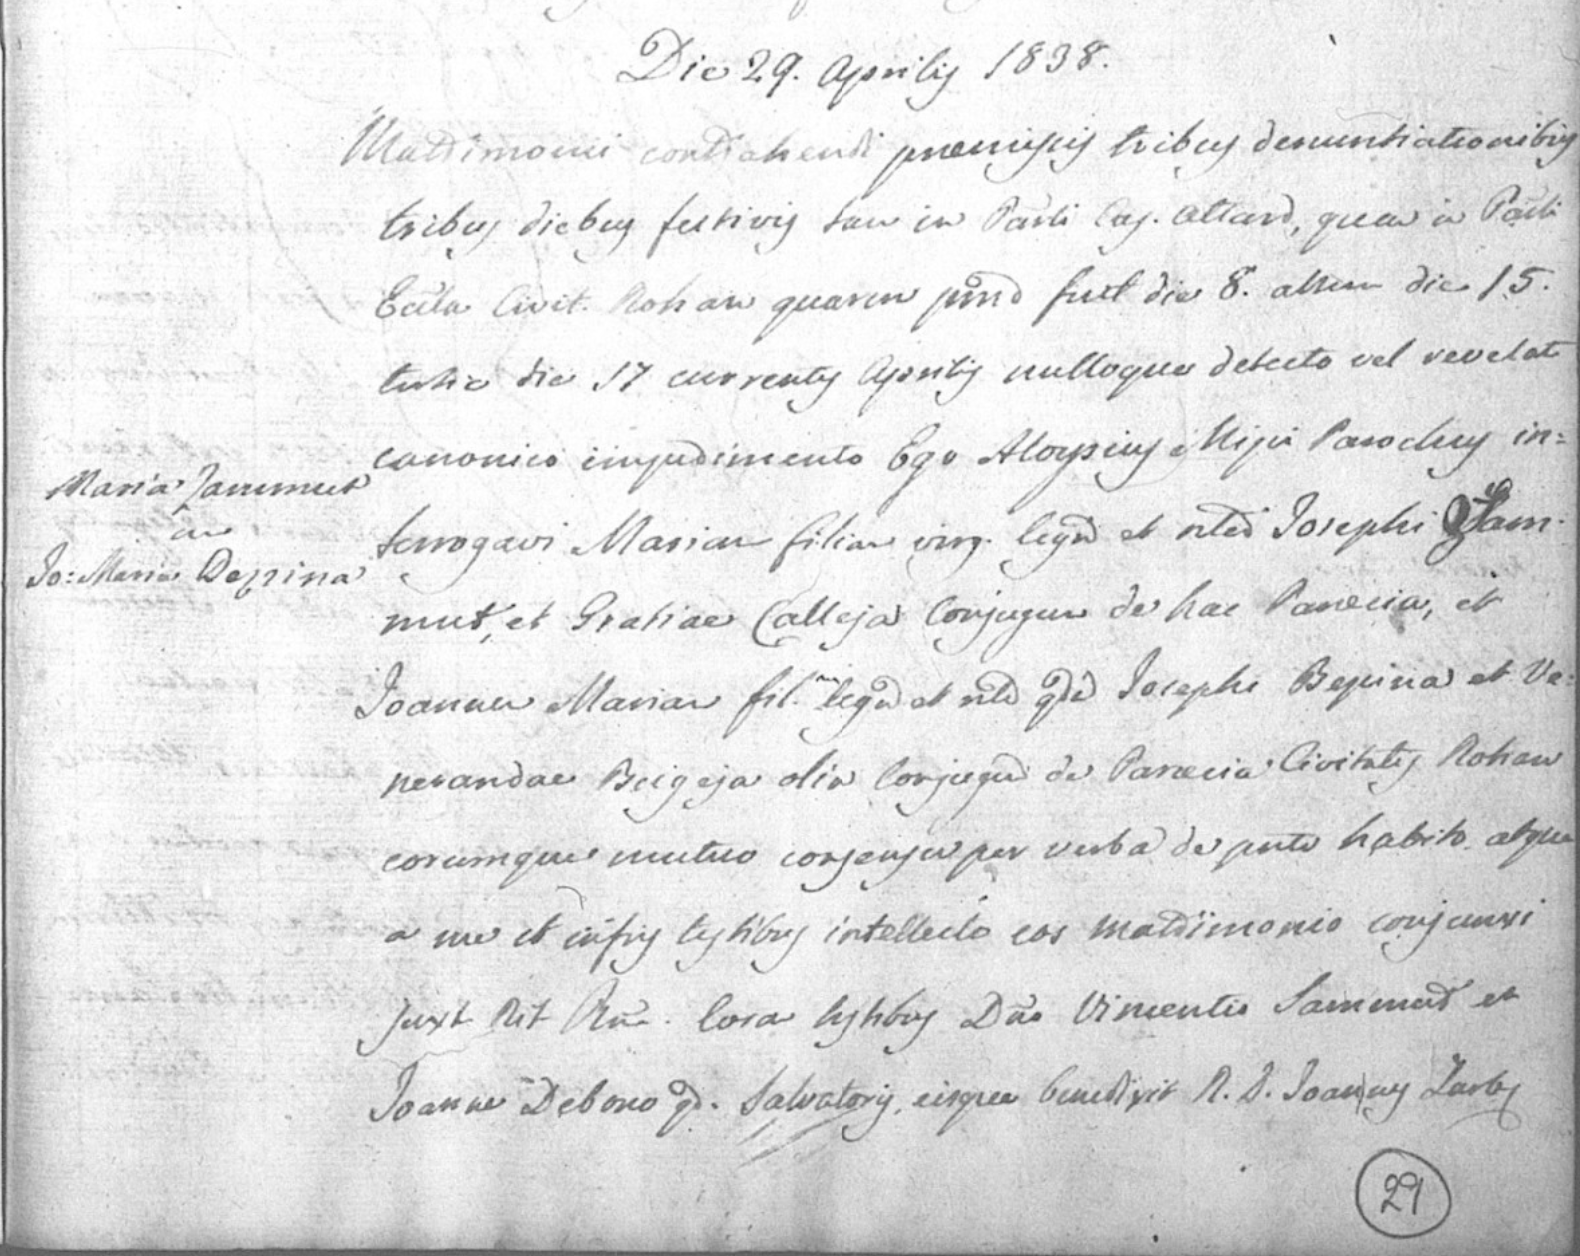 Die 29. Aprilis 1838.
Matrimonii contrahendi praemissis tribus denuntiationibus
tribus diebus festivis tam in Parli Cas. Attard, quam in Parli
Eccla Civit. Rohan quarum pma fuit die 8. altera die 15.
tertia die 17 currentis Aprilis nulloque detecto vel revelat
canonico impedimento Ego Aloysius Parochus in=
Maria Sammut
cum
Jo: Maria Bezzina
terrogavi Mariam filiam virg. legm et nlem Josephi Sam-
mut, et Gratiae Calleja Conjugum de hac Paroecia, et
Joannem Mariam fil. legm et nlm qdm Josephi Bezzina et Ve=
nerandae Buigeja olim Conjugum de Paroecia Civitatis Rohan
eorumque mutuo consensu per verba de pnte habito atque
a me et infris testibus intellecto eos matrimonio conjunxi
juxt Rit Rme. Cora testibus Dno Vincentio Sammut et
Joanne Debono qd. Salvatoris, eisque benedixit R. D. Joannes Zarb
29